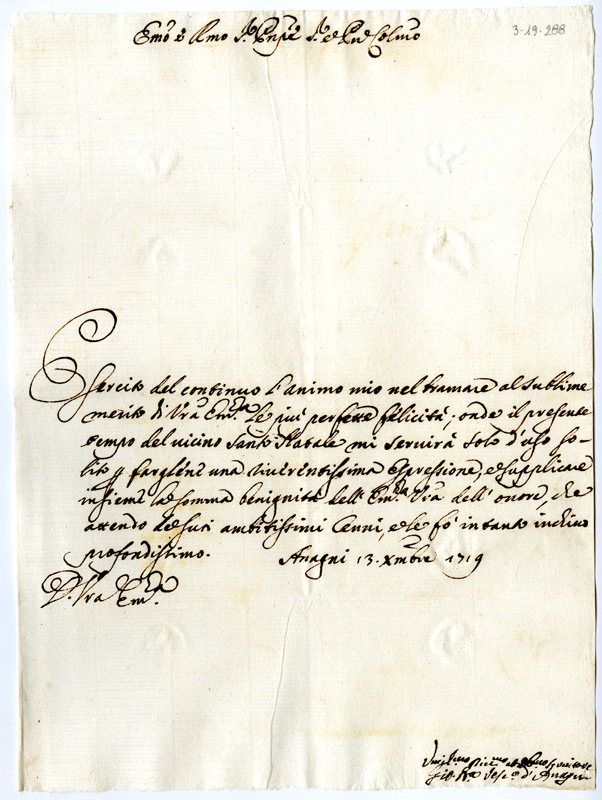 Emō e Rmo Sr. Prnpe Sr. e Prñe Colmō
3-19-288
Esercito del continuo l'animo mio nel bramare al sublime
merito di Vrã Emza le più perfette felicità; onde il presente
tempo del vicino Santo Natale mi servirà solo d'uso so-
lito p fargliene una viverentissima espressione, e supplicare
insieme la somma benignità dell'Emza Vrã dell'onore che
attendo de suoi ambitissimi Cenni, e le fò intanto inchino
profondissimo. Anagni 13. Xmbre 1719
D. Vra Emza
Vescõ d'Anagni